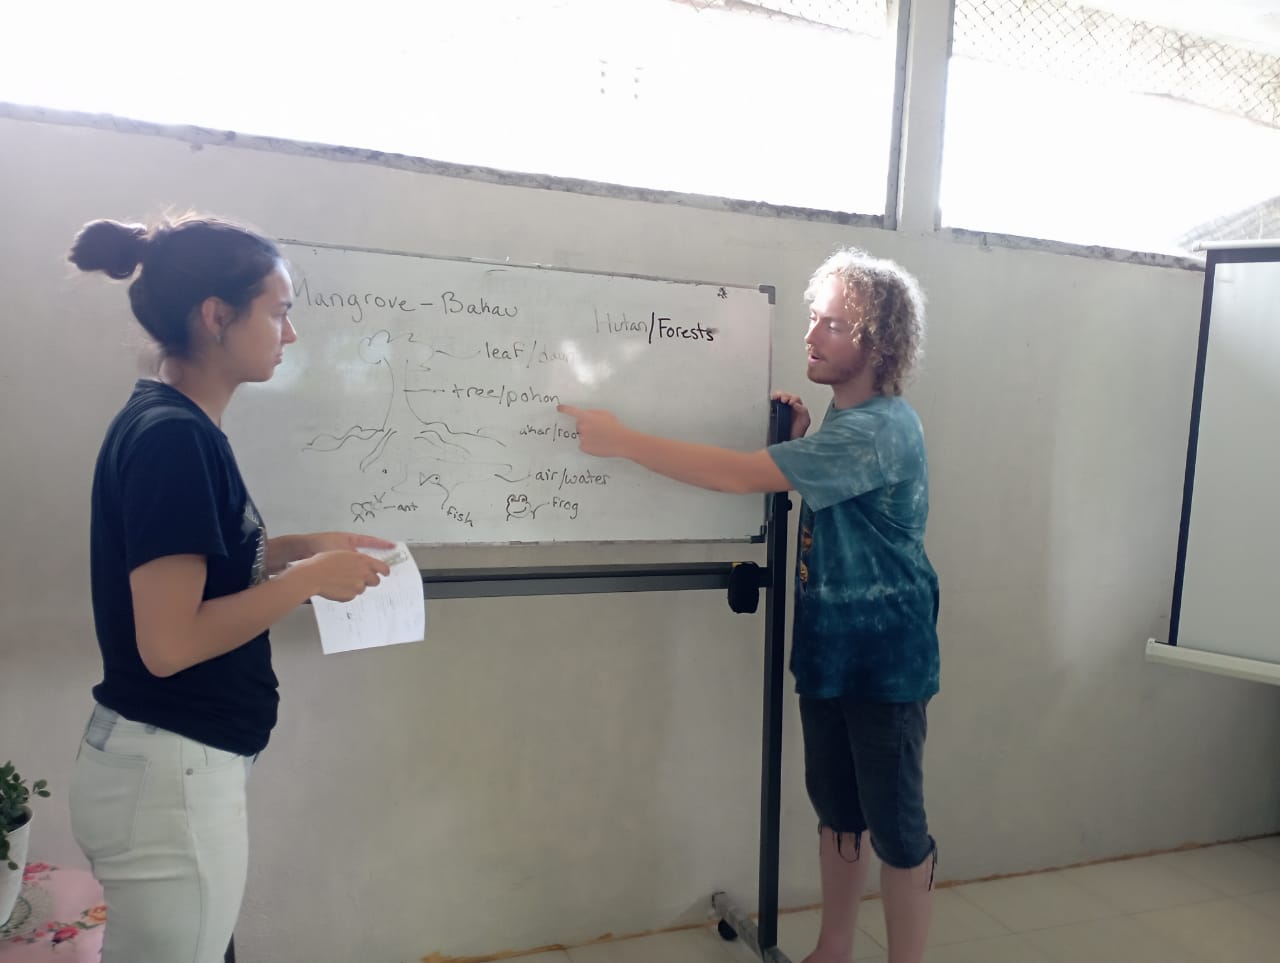 Mangrove - Bakau
Hutan/Forests
leaf/daun
tree/pohon
akar/root
air/water
ant
fish
frog